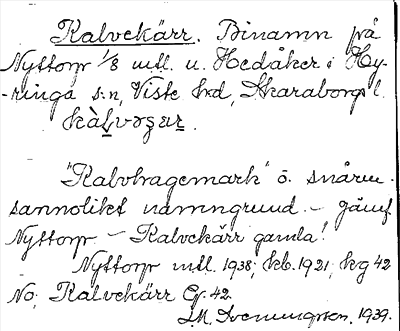 Kalvekärr. Binamn på
Nyttorp 1/8 mtl. u. Hedåker i Hy-
-ringa s:n, Viste hrd, Skaraborgs l.
"Kalvhagemark" ö. snårm.
sannolikt namngrund. – jämf
Nyttorp. – Kalvekärr gamla!
Nyttorp mtl. 1938; kb. 1921; kg 42
No; Kalvekärr Gg. 42.
1939.